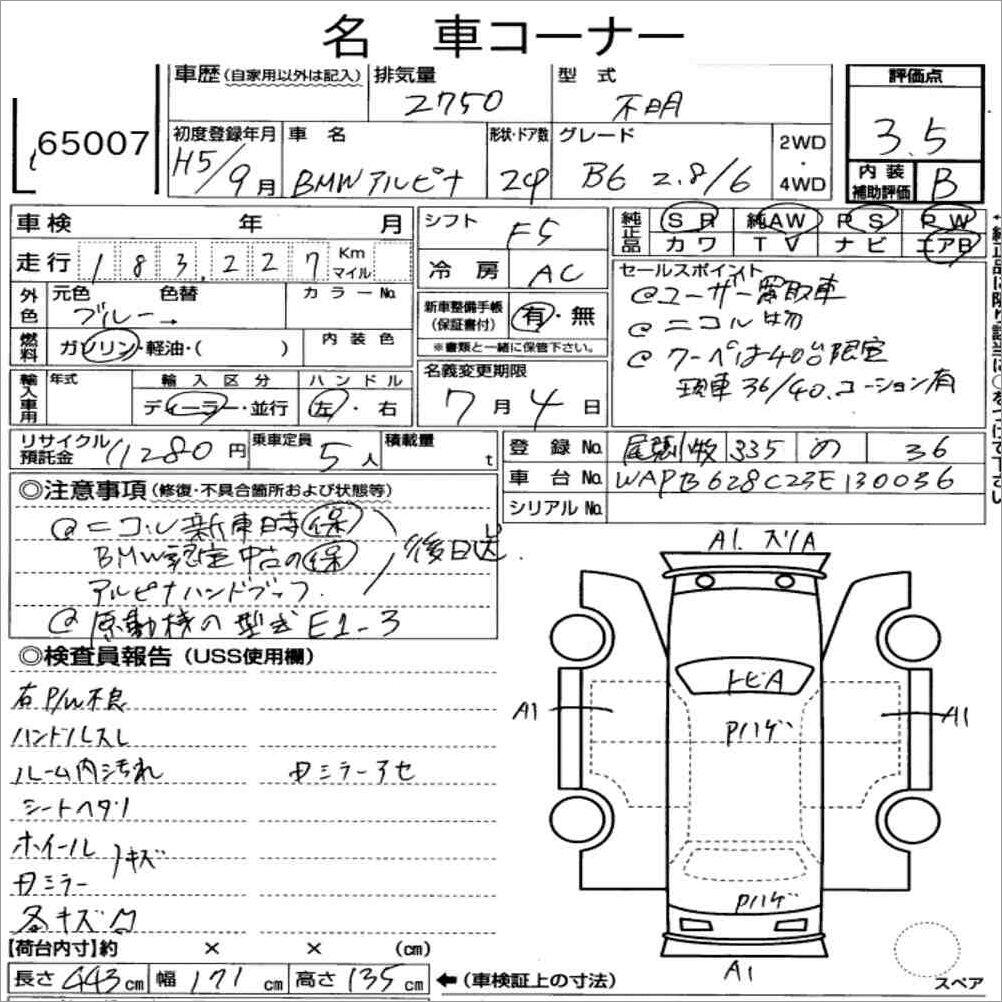 名 車コーナー
65007
車歴(自家用以外は記入) 排気量 2750 型式 不明 評価点 3.5
初度登録年月 H5/9月 車名 BMWアルピナ 形状・ドア数 2クp グレード B6 2.8/6 2WD・4WD 内装補助評価 B
車検 年 月 シフト F5 純正品 SR 純AW PS PW
カワ TV ナビ エアB
走行 183,227 Km マイル 冷房 AC
セールスポイント
@ユーザー買取車
@ニコル物
@クーペは40台限定
現車36/40.コーション有
外色 元色 色替 カラーNo.
ブルー→
新車整備手帳(保証書付) 有・無
※書類と一緒に保管下さい。
燃料 ガソリン・軽油・( ) 内装色
輸入車用 年式 輸入区分 ハンドル
ディーラー・並行 左・右
名義変更期限
7月4日
リサイクル預託金 11280円 乗車定員 5人 積載量 t
登録No. 尾張小牧 335 の 36
車台No. WAPB628C23E130036
シリアルNo.
◎注意事項(修復・不具合箇所および状態等)
@ニコル新車時(保)
BMW認定中古の(保) 後日送.
アルピナハンドブック.
@原動機の型式E1-3
◎検査員報告(USS使用欄)
右P/W不良
ハンドルスレ
ルーム内汚れ 内ミラーアセ
シートヘタリ
ホイール
キズ
内ミラー
各キズ凹
A1. スリA
トビA
A1 Pハゲ A1
Pハゲ
A1
【荷台内寸】約 × × (cm)
長さ 443cm 幅 171cm 高さ 135cm ←(車検証上の寸法)
スペア